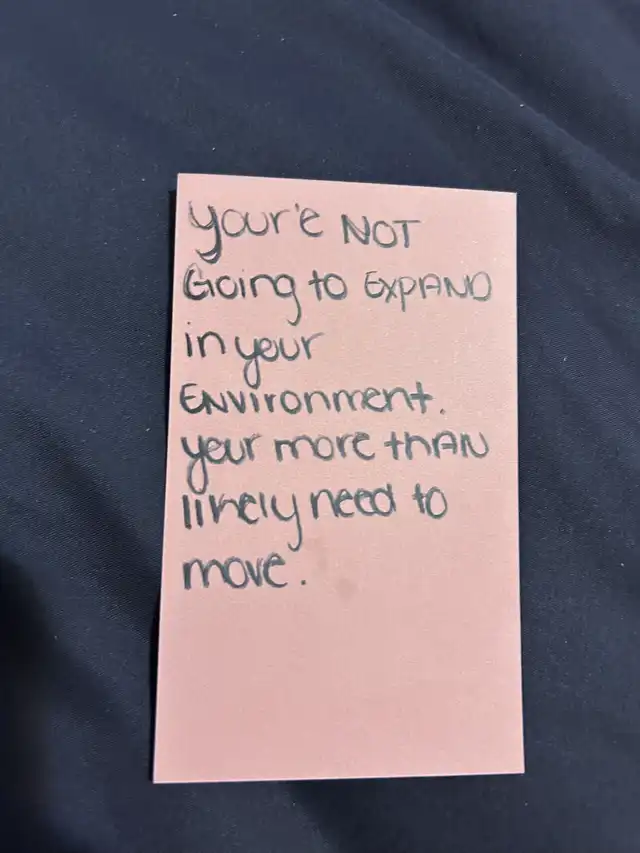 your'e NOT
Going to EXpAND
in your
ENVironment.
your more thAN
likely need to
move.